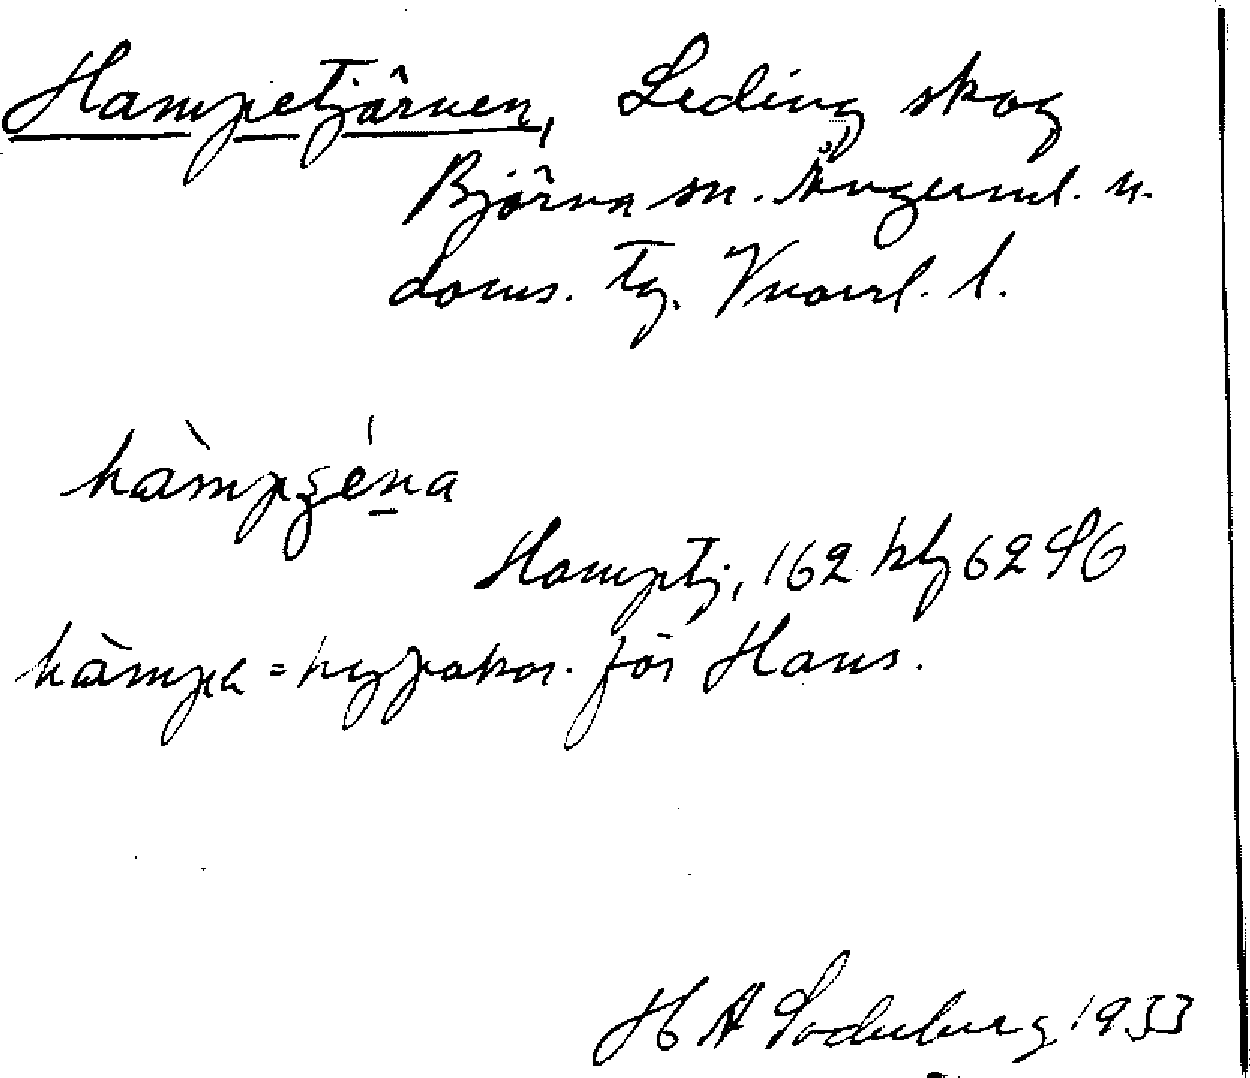 Hampetjärnen, Leding skog
Björna sn. Ångerml. n.
doms. Tg. Vnorrl. l.
hàmpʒéna
Hamptj, 162 hlg 62 S6
hàmpa = hypokor. för Hans.
H A Söderberg 1933